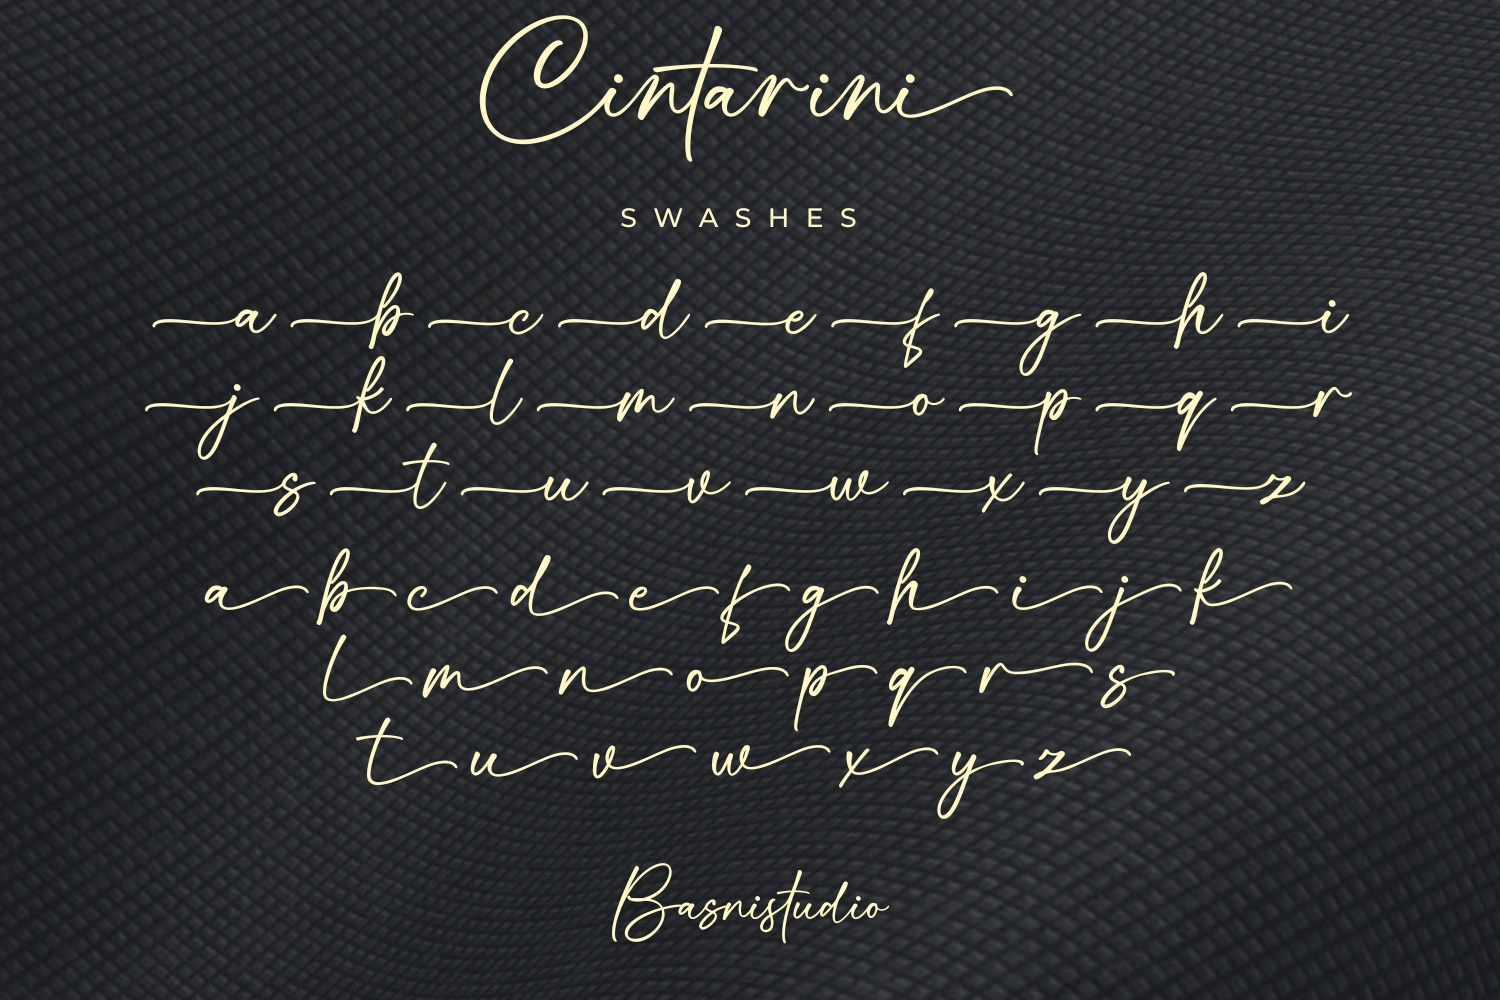 Cintarini
SWASHES
a b c d e f g h i
j k l m n o p q r
s t u v w x y z
a b c d e f g h i j k
l m n o p q r s
t u v w x y z
Basnistudio